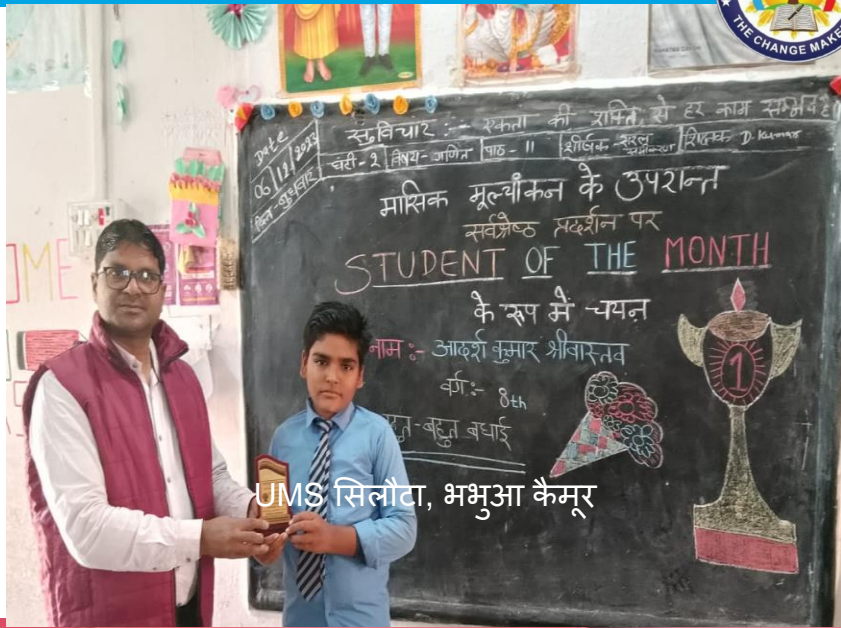 THE CHANGE MAKE
Date
06/12/2023
दिन-बुधवार
सुविचार :- एकता की शक्ति से हर काम सम्भव है।
घंटी-2 विषय-गणित पाठ-11 शीर्षक-सरल समीकरण शिक्षक D. Kumar
मासिक मूल्यांकन के उपरान्त
सर्वश्रेष्ठ प्रदर्शन पर
STUDENT OF THE MONTH
के रूप में चयन
नाम :- आदर्श कुमार श्रीवास्तव
वर्ग :- 8th
-बहुत बधाई
1
OME
UMS सिलौटा, भभुआ कैमूर